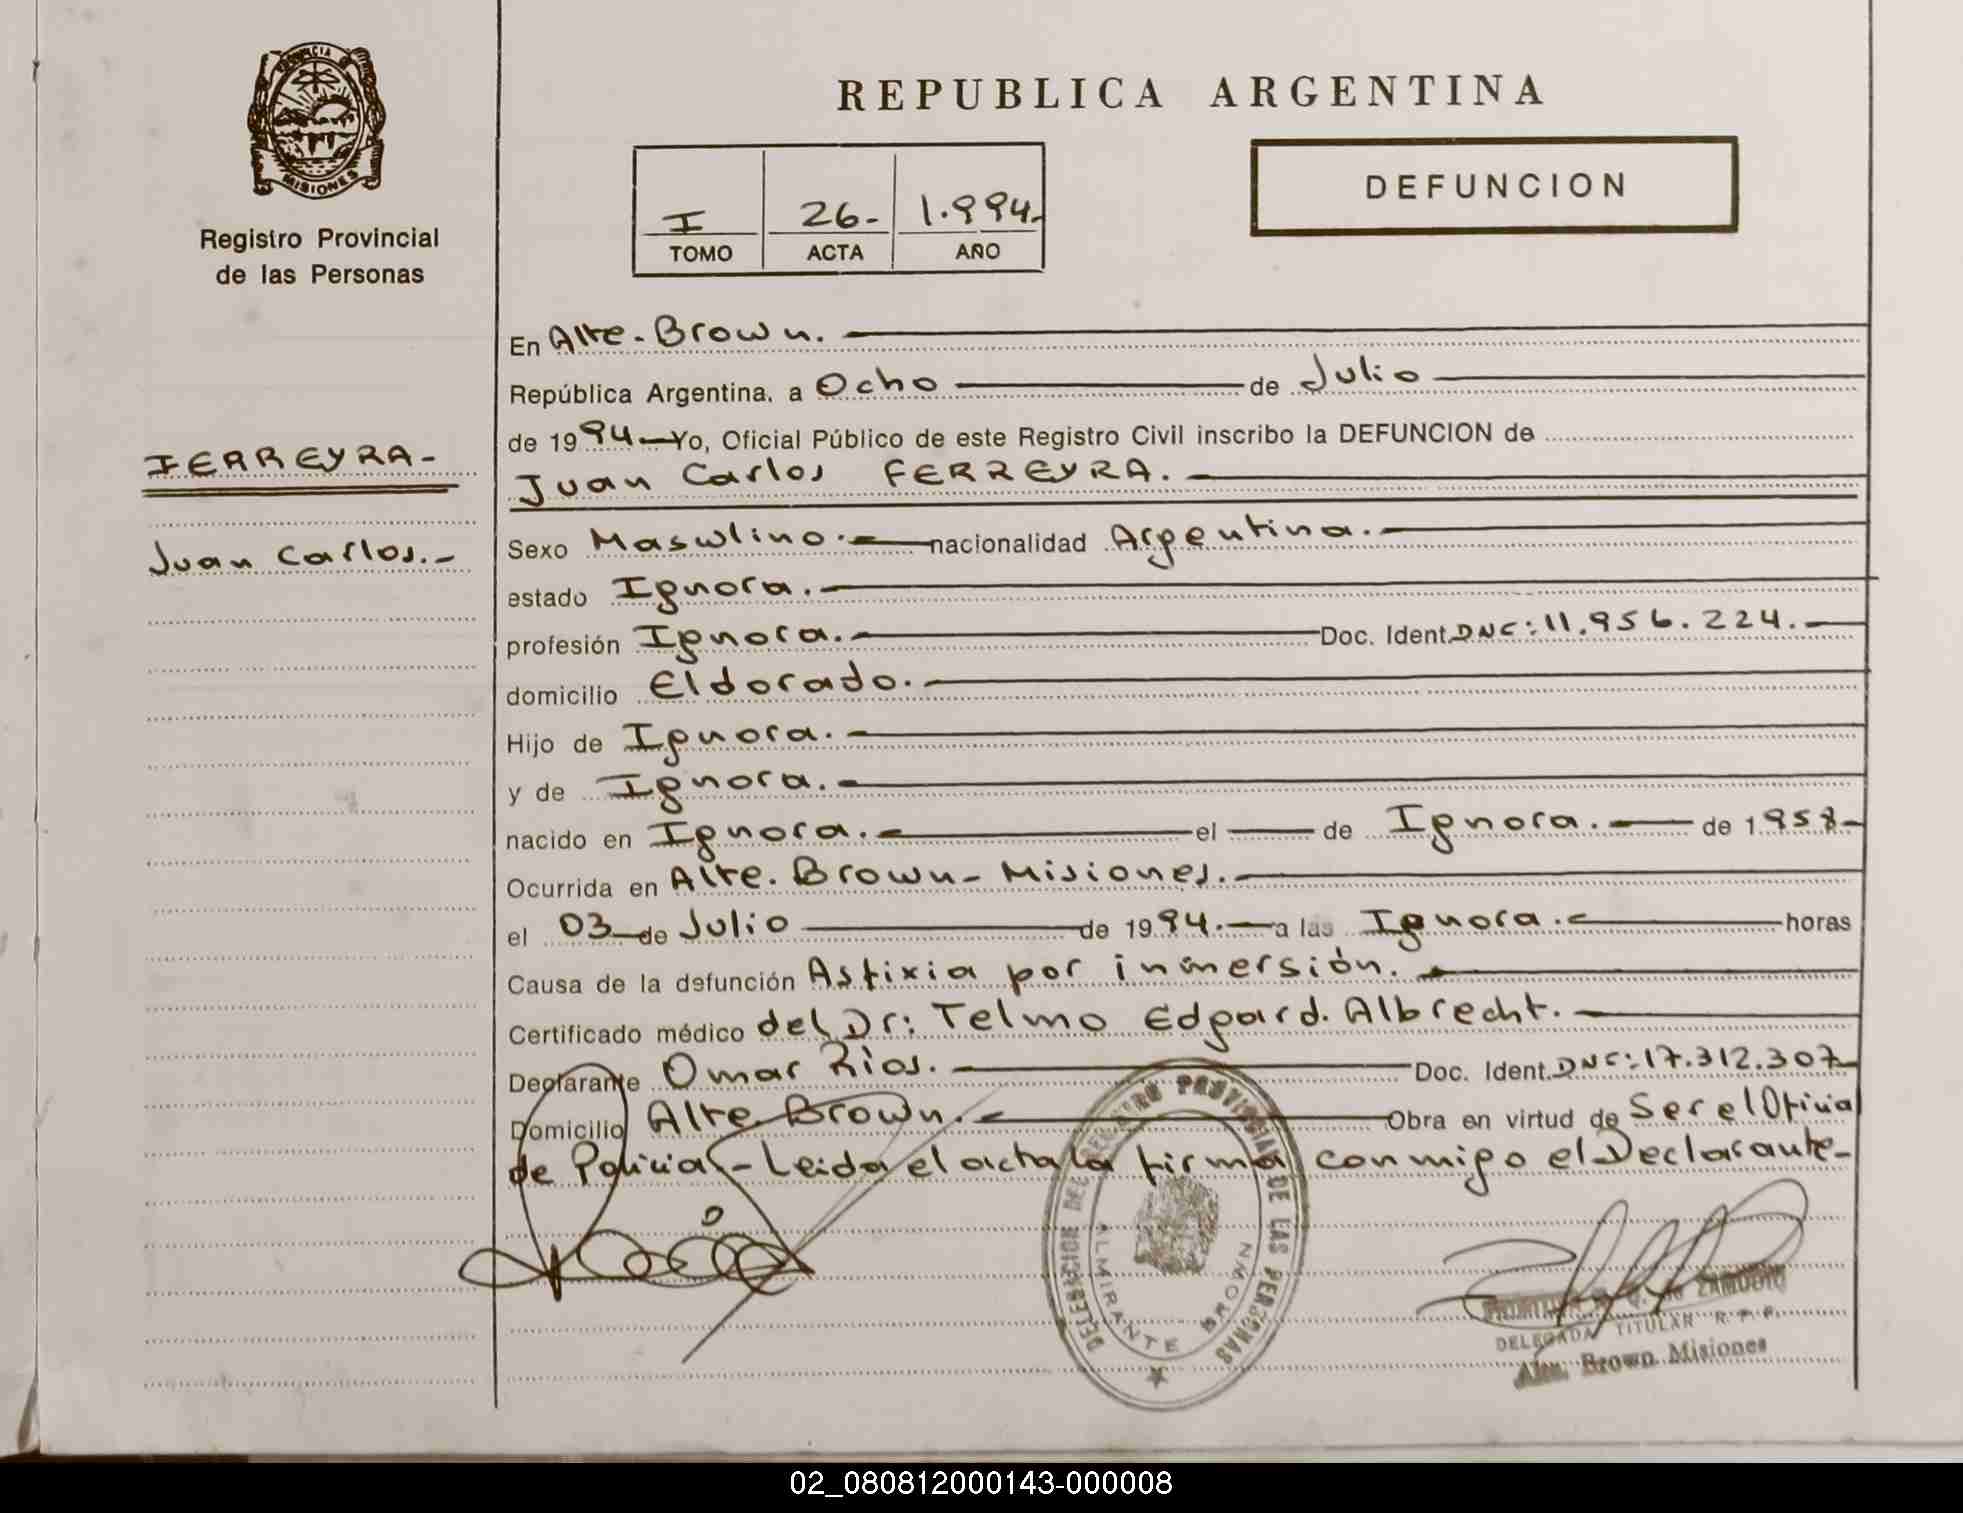 PROVINCIA DE
MISIONES
Registro Provincial
de las Personas
FERREYRA-
Juan Carlos.-
REPUBLICA ARGENTINA
I 26- 1.994.-
TOMO ACTA AÑO
DEFUNCION
En Alte. Brown.
República Argentina, a Ocho de Julio
de 1994 Yo, Oficial Público de este Registro Civil inscribo la DEFUNCION de
Juan Carlos FERREYRA.
Sexo Masculino. nacionalidad Argentina.
estado Ignora.
profesión Ignora. Doc. Ident. DNC: 11.956.224.-
domicilio Eldorado.
Hijo de Ignora.
y de Ignora.
nacido en Ignora. el — de Ignora. de 1958-
Ocurrida en Alte. Brown - Misiones.
el 03 de Julio de 1994. a las Ignora. horas
Causa de la defunción Asfixia por inmersión.
Certificado médico del Dr: Telmo Edgard. Albrecht.
Declarante Omar Rios. Doc. Ident. DNC: 17.312.307
Domicilio Alte. Brown. Obra en virtud de Ser el Oficial
de Policia - Leida el acta la firma conmigo el Declarante-
DELEGACION DEL REGISTRO PROVINCIAL DE LAS PERSONAS
ALMIRANTE BROWN
ZAMUDIO
DELEGADA TITULAR R. P. P.
Alte. Brown Misiones
02_080812000143-000008